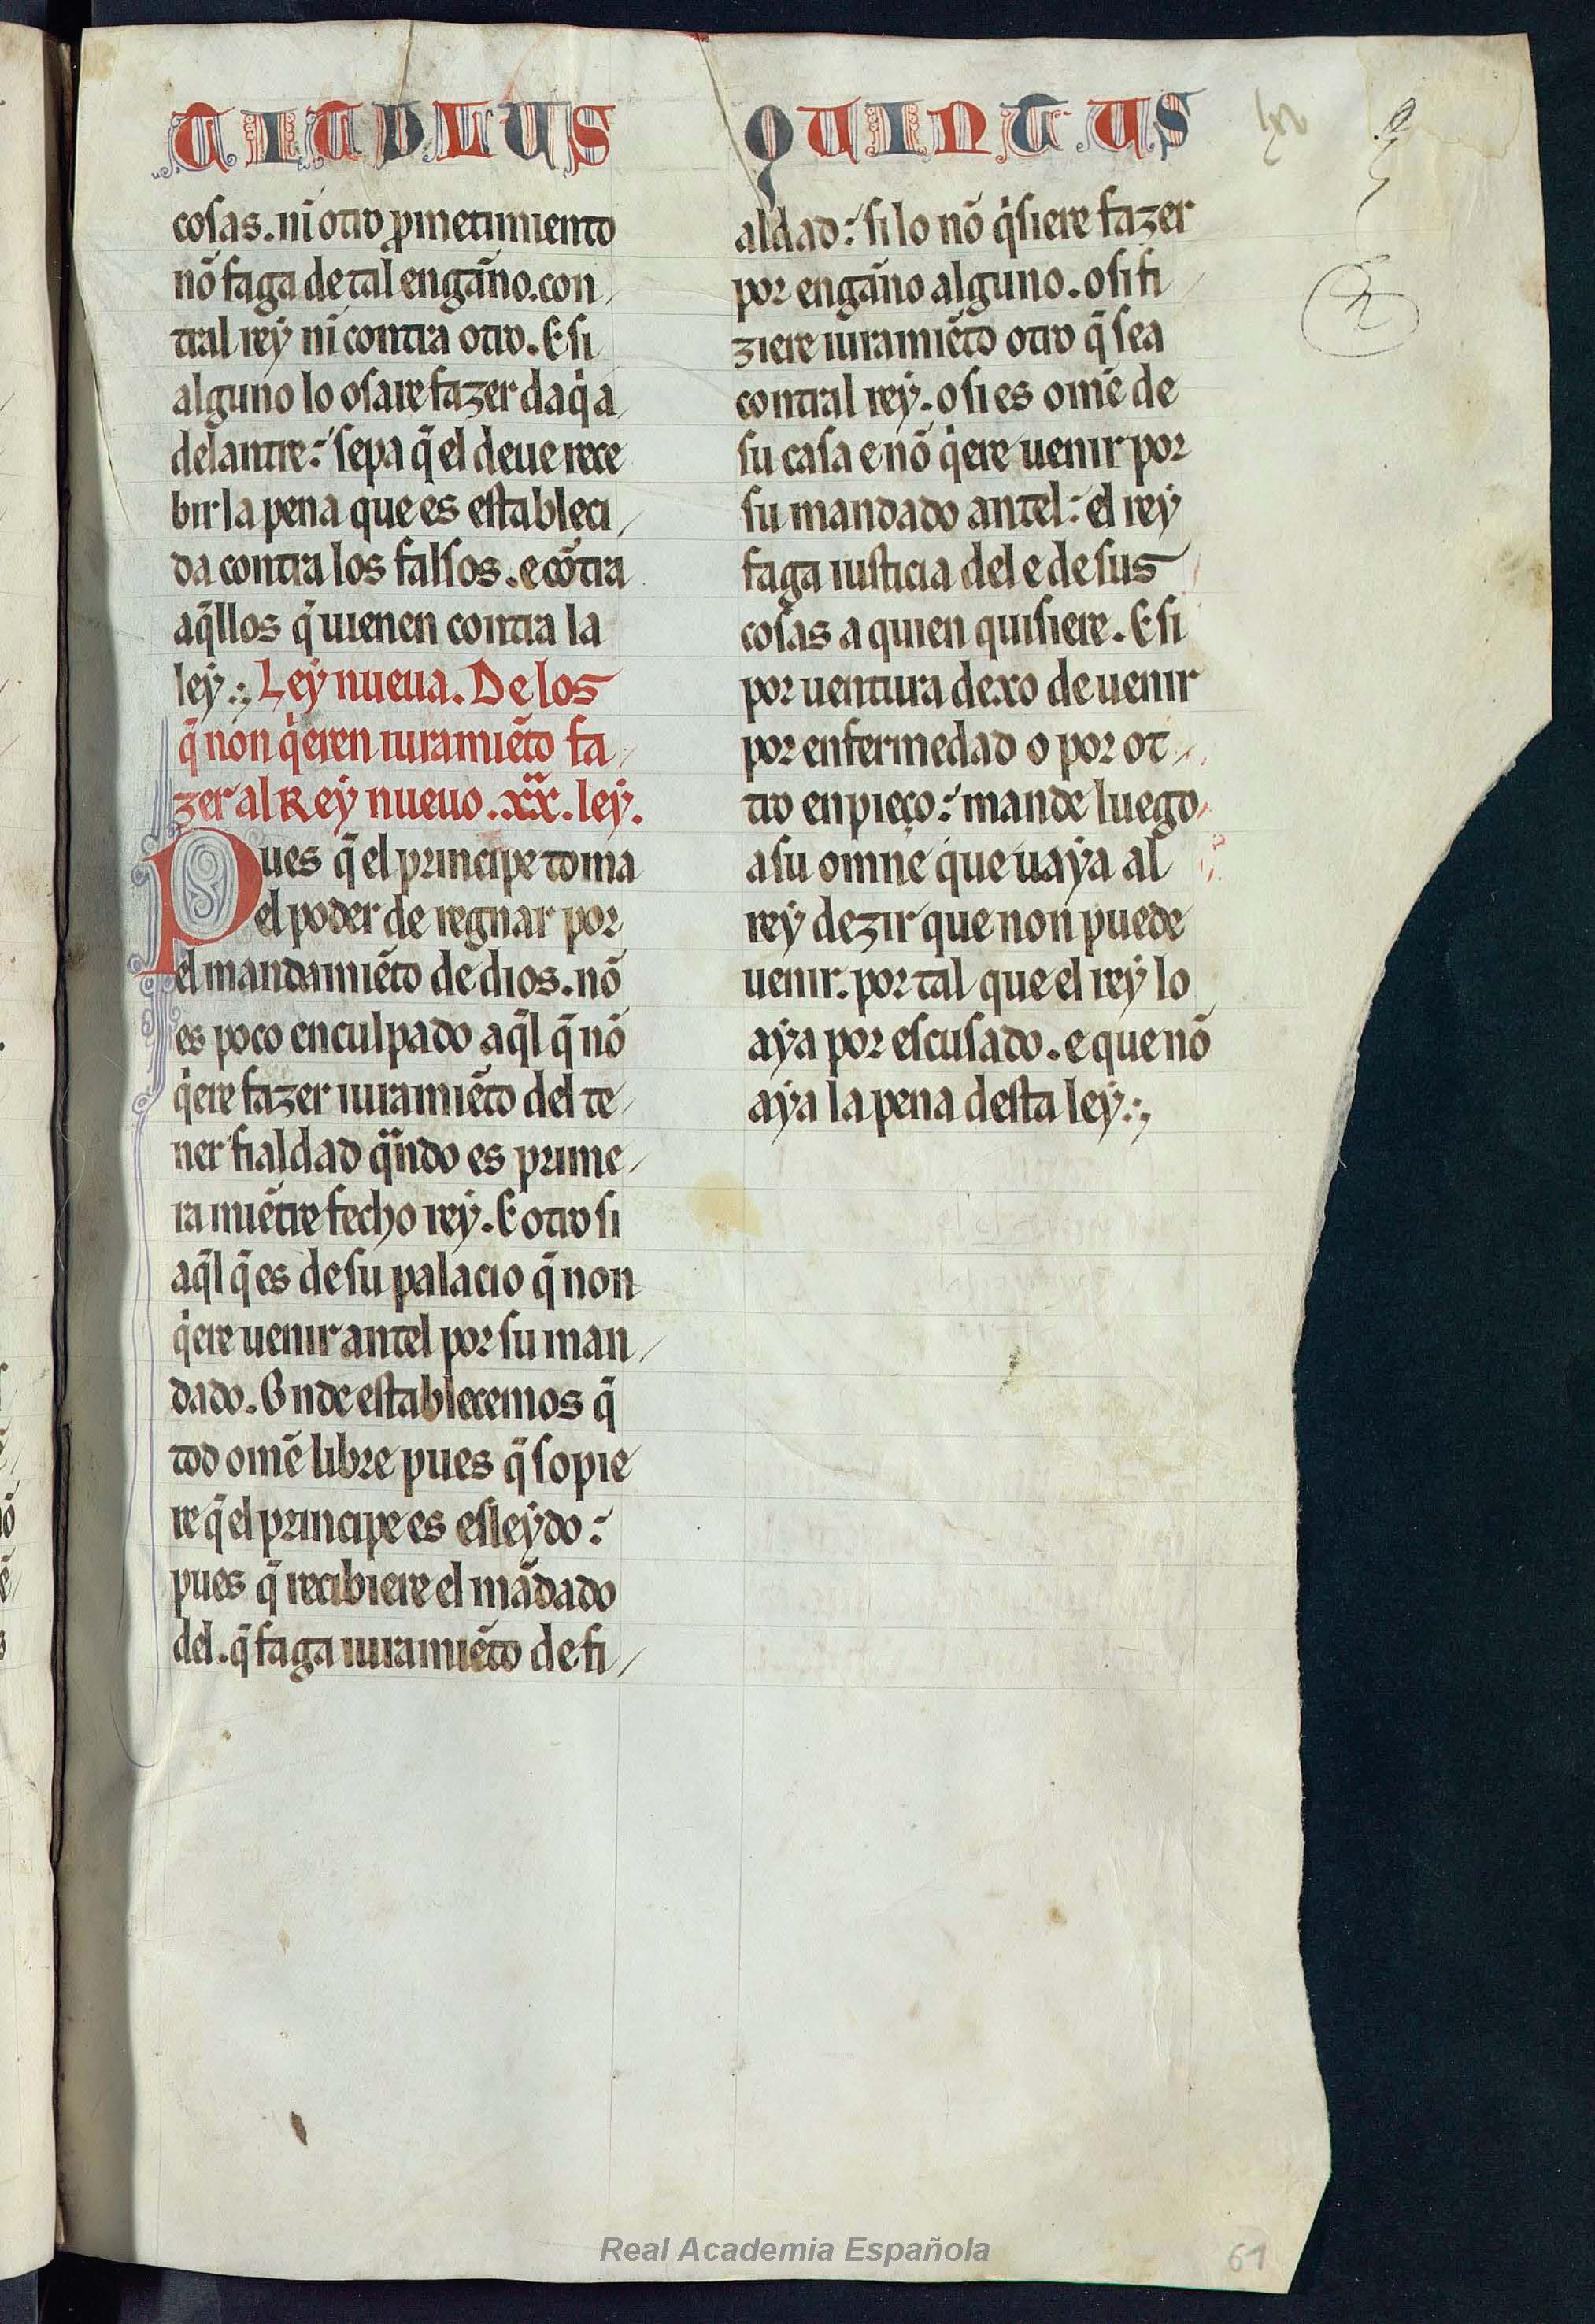 TITULUS QUINTUS
cosas. ni otro ꝓmetimiento
nõ faga de tal engãno. con
tral rey ni contra otro. E si
alguno lo osare fazer daq̇ a
delantre: sepa q̃ el deue rece
bir la pena que es estableci
da contra los falsos. e cõtra
aq̃llos q̃ uienen contra la
ley. Ley nueua. De los
q̃ non q̇eren iuramiẽto fa
zer al Rey nueuo. xx. ley.
Pues q̃ el principe toma
el poder de regnar por
el mandamiẽto de dios. nõ
es poco enculpado aq̃l q̃ nõ
q̇ere fazer iuramiẽto del te
ner fialdad q̃ndo es prime
ra miẽtre fecho rey. E otro si
aq̃l q̃ es de su palacio q̃ non
q̇ere uenir antel por su man
dado. Onde establecemos q̃
tod omẽ libre pues q̃ sopie
re q̃ el principe es esleydo:
pues q̃ recibiere el mãdado
del. q̃ faga iuramiẽto de fi
aldad: si lo nõ q̇siere fazer
por engãno alguno. o si fi
ziere iuramiẽto otro q̃ sea
contral rey. o si es omẽ de
su casa e nõ q̇ere uenir por
su mandado antel: el rey
faga iusticia del e de sus
cosas a quien quisiere. E si
por uentura dexo de uenir
por enfermedad o por ot
tro enpieço: mande luego
a su omne que uaya al
rey dezir que non puede
uenir. por tal que el rey lo
aya por escusado. e que nõ
aya la pena desta ley.
Real Academia Española
61